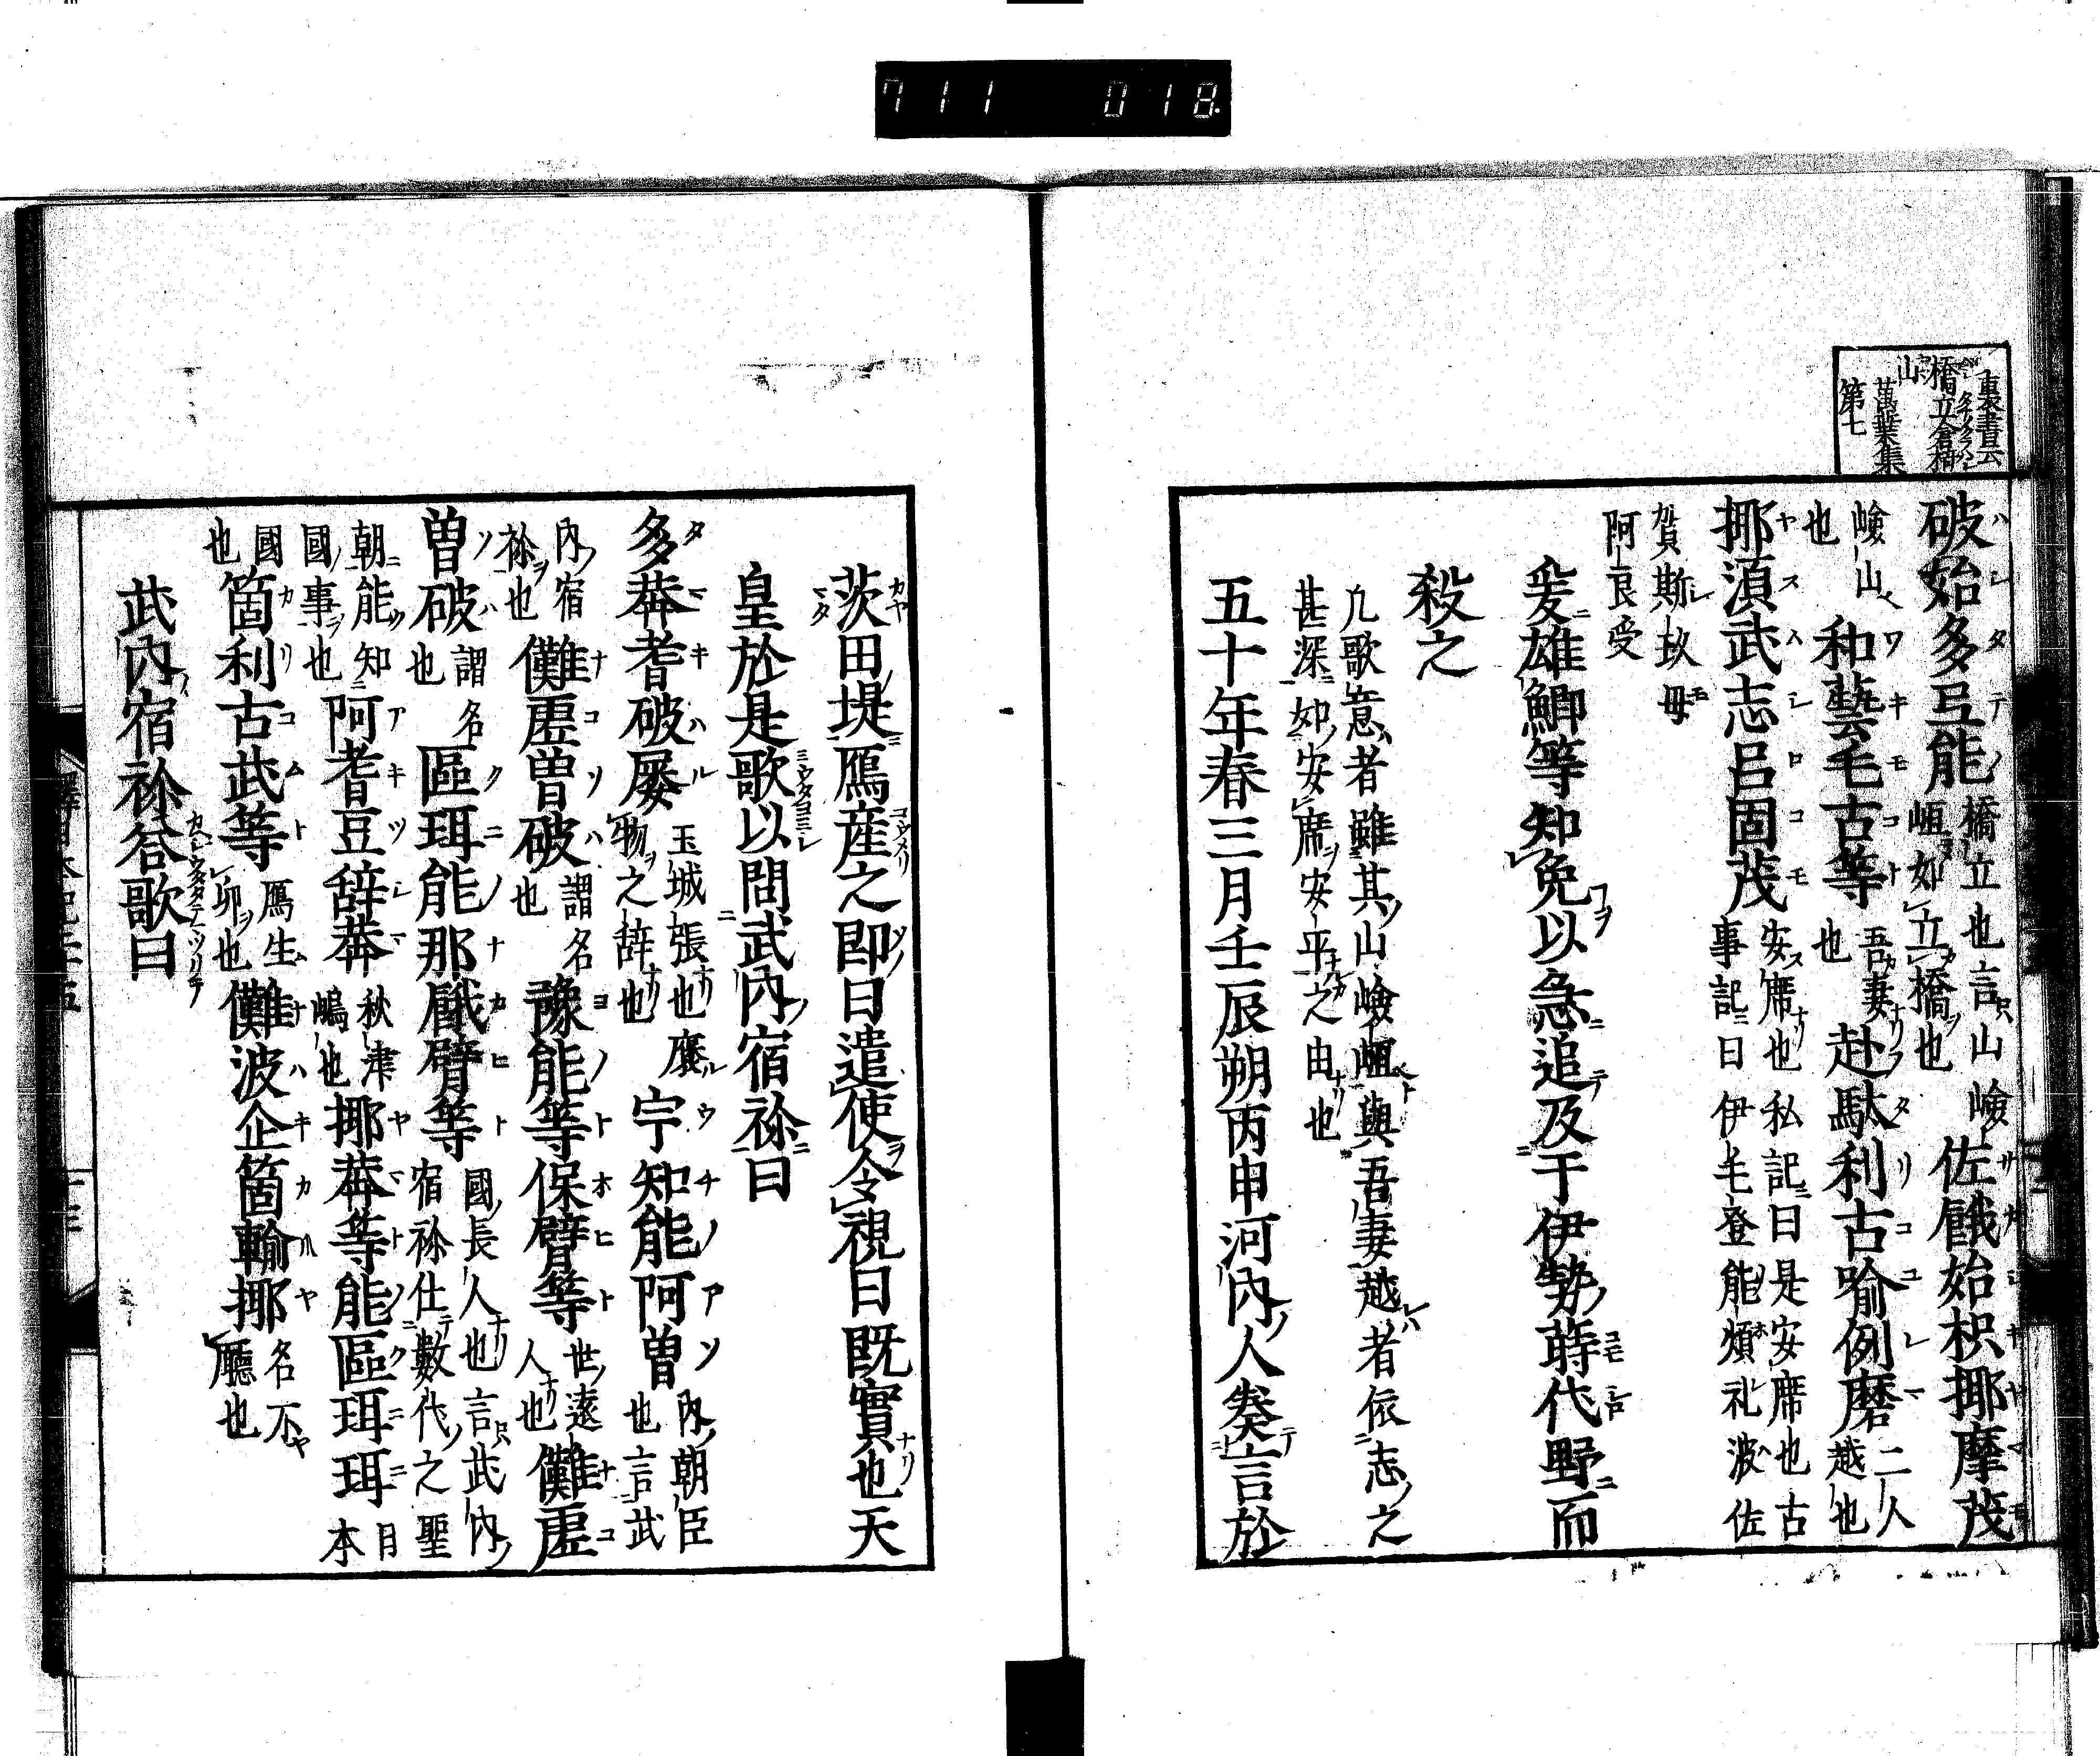 711 018
裏書云
橋立倉橋
山
萬葉集
第七
破始多氐能 橋立也言山嶮 佐餓始枳揶摩茂
嶮山 也 和藝毛古等 吾妻 也 赴駄利古喩例磨 二人 越也
揶湏武志呂固茂 安席也私記曰是安席也古
事記曰伊毛登能煩礼波佐
賀斯玖毋
阿良受
爰雄鯽等知免以急追及于伊勢蒔代野而
殺之
凢歌意者雖其山嶮岨與吾妻越者依志之
甚深如安席安平之由也
五十年春三月壬辰朔丙申河內人奏言於
茨田堤鴈産之即日遣使令視曰既實也天
皇於是歌以問武內宿祢曰
多莾耆破屡 玉城張也褒
物之辞也 宇知能阿曽 內朝臣
也言武
內宿
祢也 儺虚曽破 謂名
也 豫能等保臂等 世遠
人也 儺虚
曽破 謂名
也 區珥能那餓臂等 國長人也言武內
宿祢仕數代之聖
朝能知
國事也 阿耆豆辞莾 秋津
嶋也 揶莾等能區珥珥 日
本
國
也 箇利古武等 鴈生
卵也 儺波企箇輸揶 名不
廳也
武內宿祢答歌曰